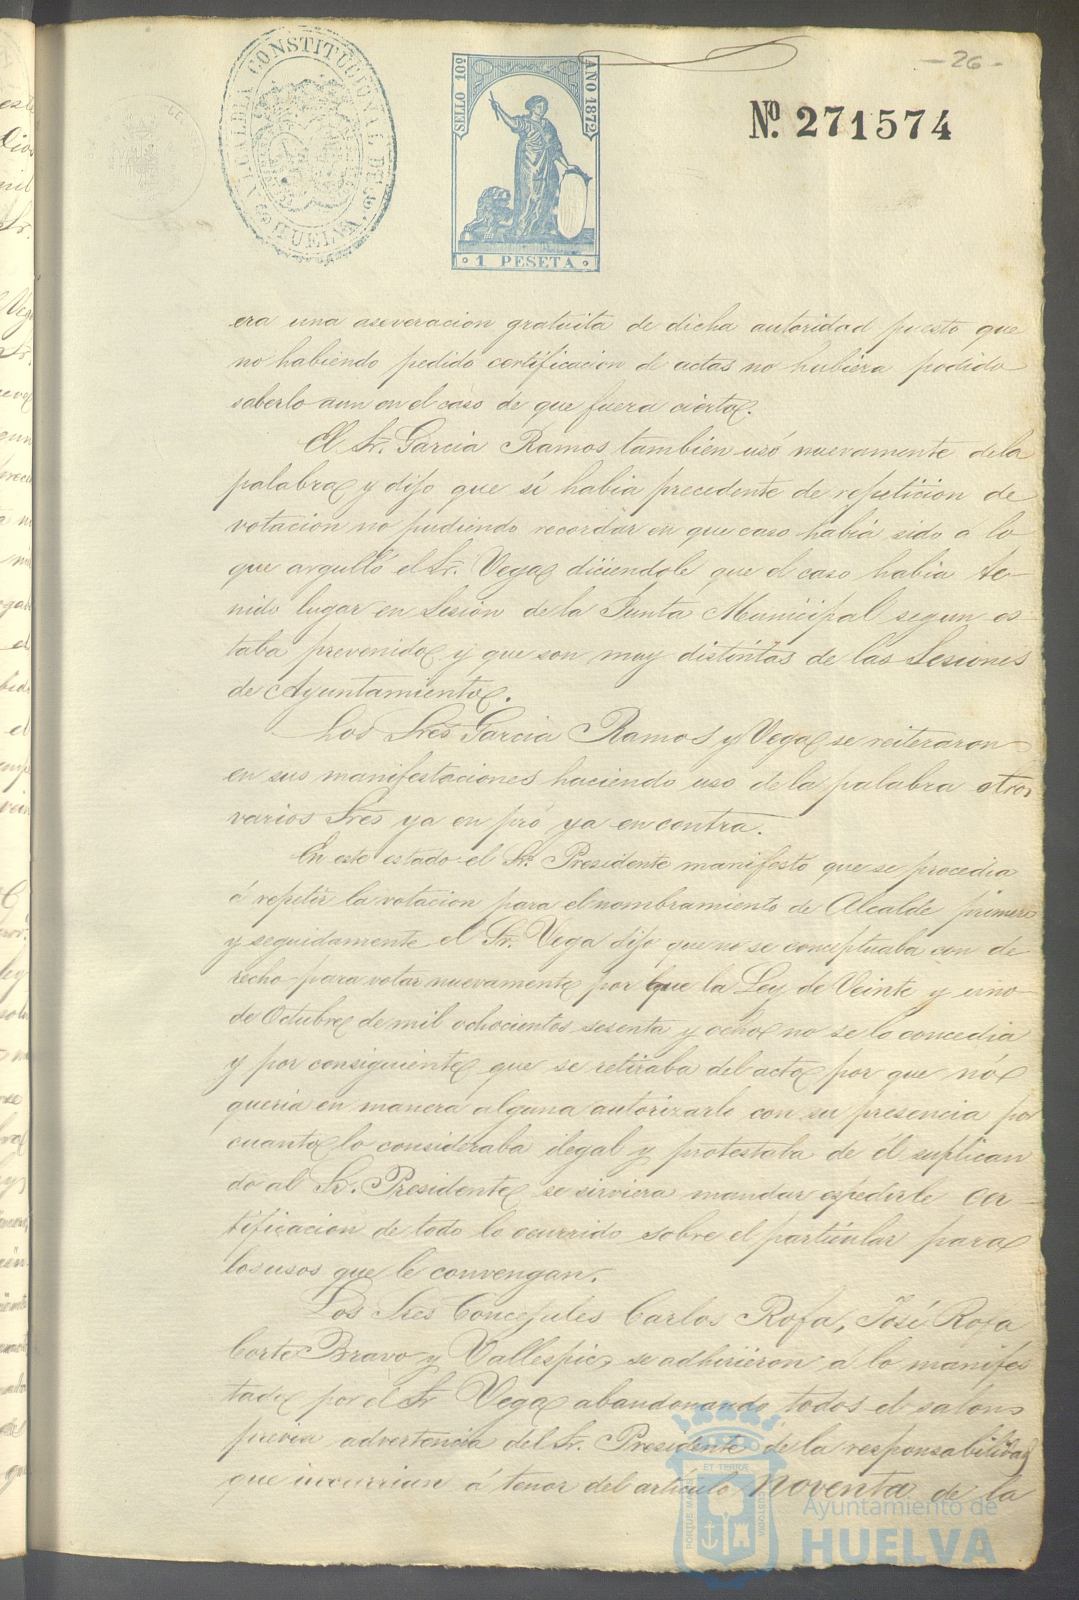 - 26 -
ALCALDIA CONSTITUCIONAL DE HUELVA
SELLO 10º
AÑO 1872
1 PESETA
Nº. 271574
era una aseveracion gratuita de dicha autoridad puesto que
no habiendo pedido certificacion de actas no hubiera podido
saberlo aun en el caso de que fuera cierto.
El Sr. Garcia Ramos tambien usó nuevamente dela
palabra y dijo que si habia precedente de repeticion de
votacion no pudiendo recordar en que caso habia sido a lo
que arguyó el Sr. Vega diciendole que el caso habia te-
nido lugar en Sesion de la Junta Municipal segun es-
taba prevenido y que son muy distintas de las Sesiones
de Ayuntamiento.
Los Sres Garcia Ramos y Vega se reiteraron
en sus manifestaciones haciendo uso de la palabra otros
varios Sres ya en pró ya en contra.
En este estado el Sr. Presidente manifestó que se procedia
á repetir la votacion para el nombramiento de Alcalde primero
y seguidamente el Sr. Vega dijo que no se conceptuaba con de
recho para votar nuevamente por que la Ley de Veinte y uno
de Octubre de mil ochocientos sesenta y ocho no se lo concedia
y por consiguiente que se retiraba del acto por que nó
queria en manera alguna autorizarlo con su presencia por
cuanto lo consideraba ilegal y protestaba de él suplican
do al Sr. Presidente se sirviera mandar espedirle cer-
tificacion de todo lo ocurrido sobre el particular para
losusos que le convengan.
Los Sres Concejales Carlos Rofa, José Rofa
Corte Bravo y Vallespin se adhirieron á lo manifes
tado por el Sr Vega abandonando todos el salon
previa advertencia del Sr. Presidente de la responsabilidad
que incurrian á tenor del articulo noventa de la
Ayuntamiento de
HUELVA